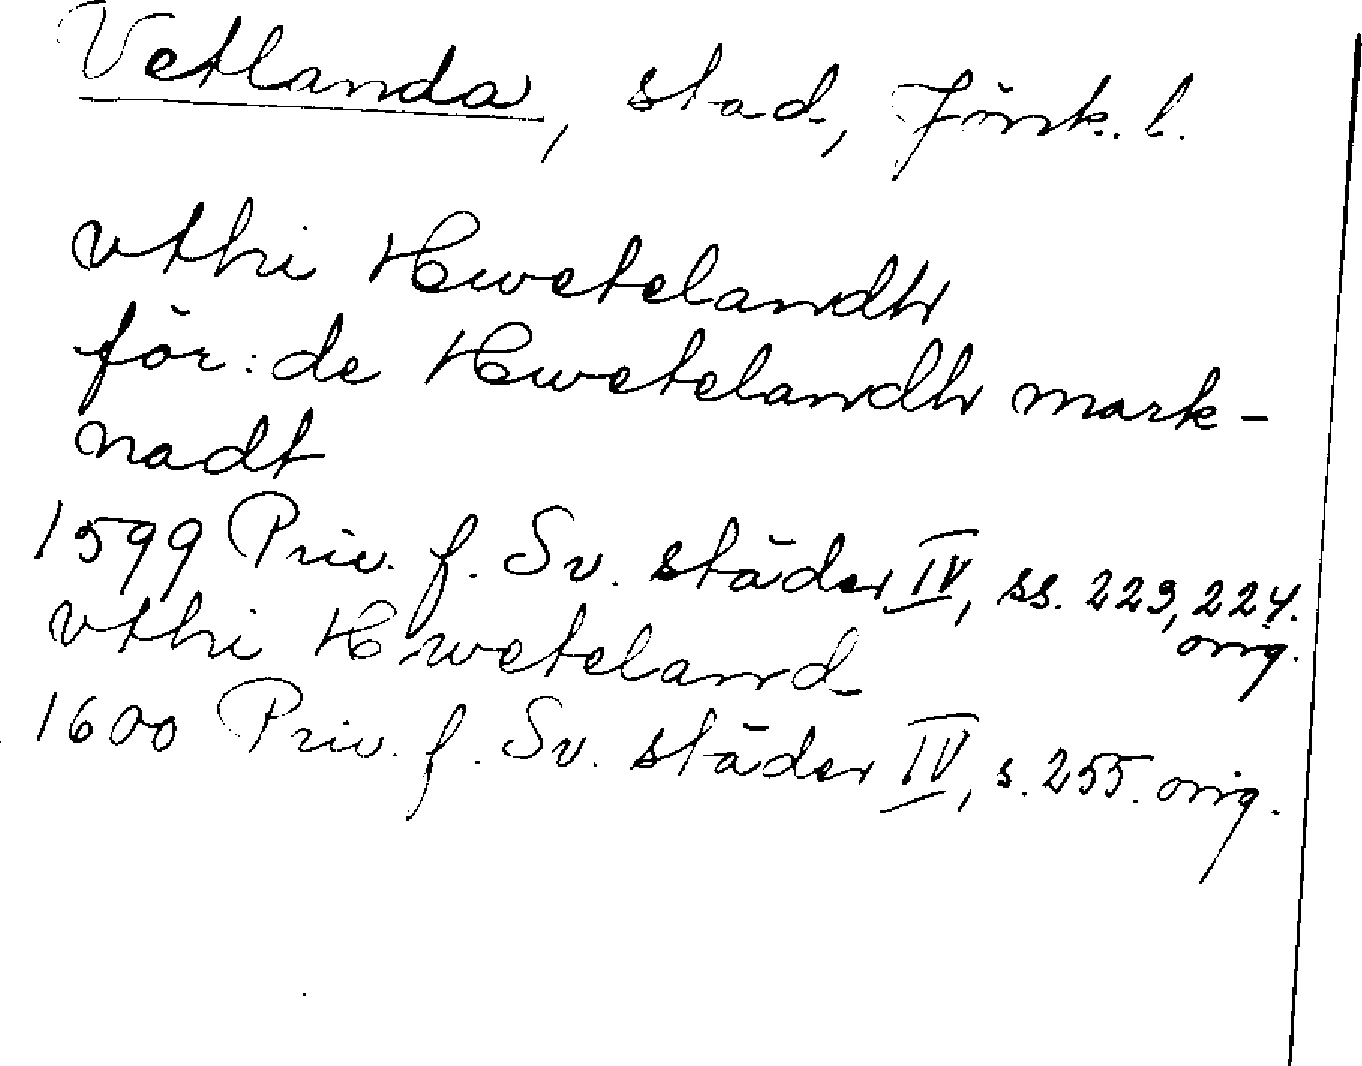 Vetlanda, stad, Jönk. l.
vthi Hwetelandh
för: de Hwetelandh mark-
nadt
1599 Priv. f. Sv. städer IV, ss. 223, 224.
orig.
vthi Hweteland
1600 Priv. f. Sv. städer IV, s. 255. orig.